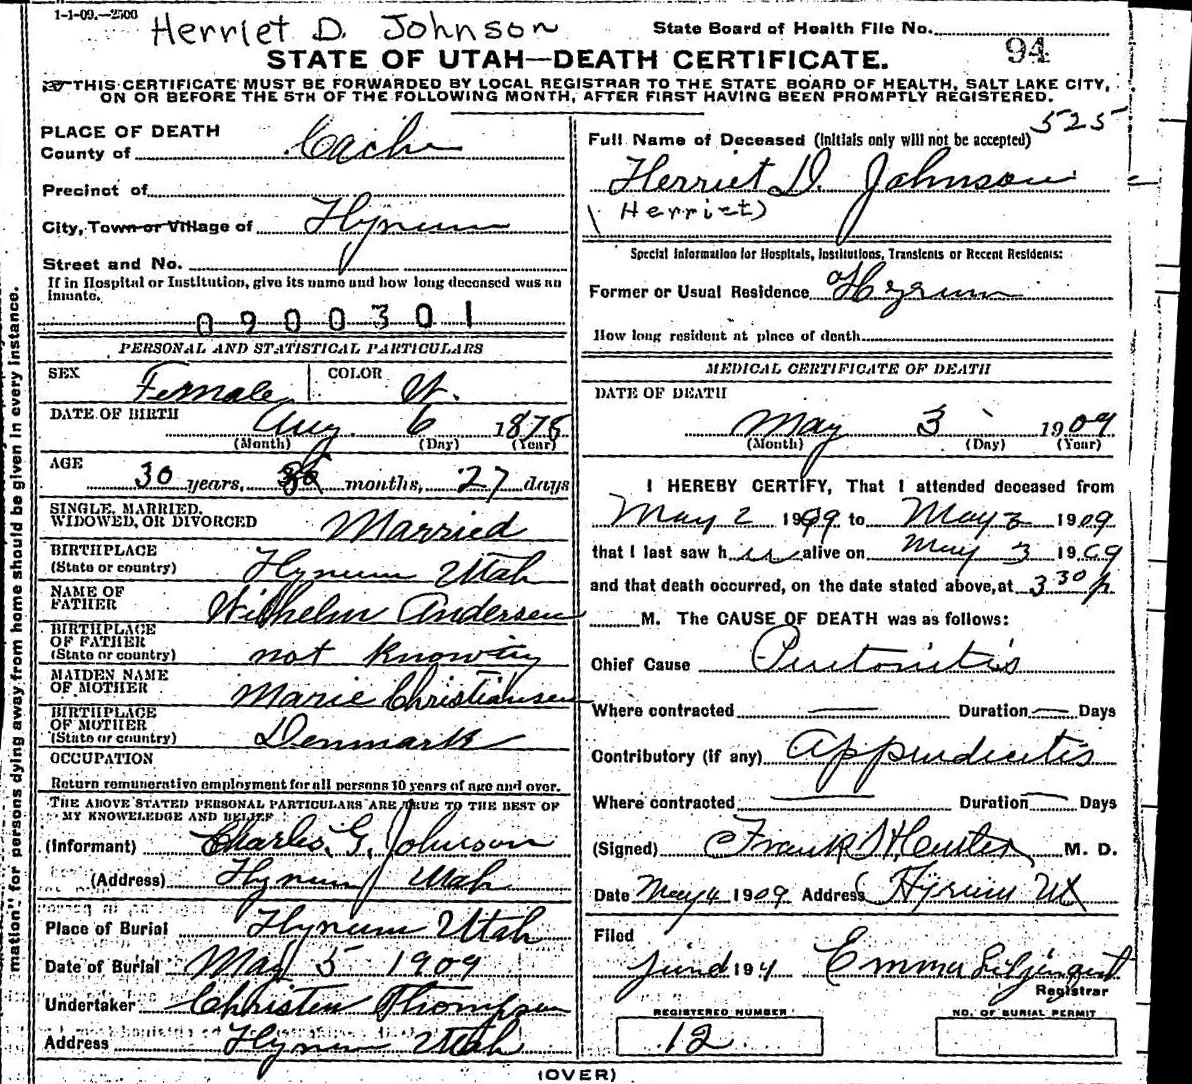 1-1-09.—2500
Herriet D. Johnson
State Board of Health File No.
94
STATE OF UTAH—DEATH CERTIFICATE.
THIS CERTIFICATE MUST BE FORWARDED BY LOCAL REGISTRAR TO THE STATE BOARD OF HEALTH, SALT LAKE CITY,
ON OR BEFORE THE 5TH OF THE FOLLOWING MONTH, AFTER FIRST HAVING BEEN PROMPTLY REGISTERED.
mation" for persons dying away from home should be given in every instance.
PLACE OF DEATH
County of Cache
Precinct of
City, Town or Village of Hyrum
Street and No.
If in Hospital or Institution, give its name and how long deceased was an
inmate.
0900301
PERSONAL AND STATISTICAL PARTICULARS
SEX Female COLOR W.
DATE OF BIRTH Aug. 6 1878
(Month) (Day) (Year)
AGE
30 years, months, 27 days
SINGLE, MARRIED,
WIDOWED, OR DIVORCED Married
BIRTHPLACE
(State or country) Hyrum Utah
NAME OF
FATHER Wilhelm Andersen
BIRTHPLACE
OF FATHER
(State or country) not knowing
MAIDEN NAME
OF MOTHER Marie Christiansen
BIRTHPLACE
OF MOTHER
(State or country) Denmark
OCCUPATION
Return remunerative employment for all persons 10 years of age and over.
THE ABOVE STATED PERSONAL PARTICULARS ARE TRUE TO THE BEST OF
MY KNOWLEDGE AND BELIEF
(Informant) Charles G. Johnson
(Address) Hyrum Utah
Place of Burial Hyrum Utah
Date of Burial May 5 1909
Undertaker Christen Thompson
Address Hyrum Utah
525
Full Name of Deceased (Initials only will not be accepted)
Herriet D. Johnson
(Herriet)
Special Information for Hospitals, Institutions, Transients or Recent Residents:
Former or Usual Residence Hyrum
How long resident at place of death
MEDICAL CERTIFICATE OF DEATH
DATE OF DEATH
May 3 1909
(Month) (Day) (Year)
I HEREBY CERTIFY, That I attended deceased from
May 2 1909 to May 3 1909
that I last saw her alive on May 3 1909
and that death occurred, on the date stated above, at 3 30 p
M. The CAUSE OF DEATH was as follows:
Chief Cause Peritonitis
Where contracted — Duration — Days
Contributory (if any) Appendicitis
Where contracted — Duration — Days
(Signed) Frank M. D.
Date May 4 1909 Address Hyrum Ut
Filed
190 Emma Liljenquist
Registrar
REGISTERED NUMBER
12
NO. OF BURIAL PERMIT
(OVER)